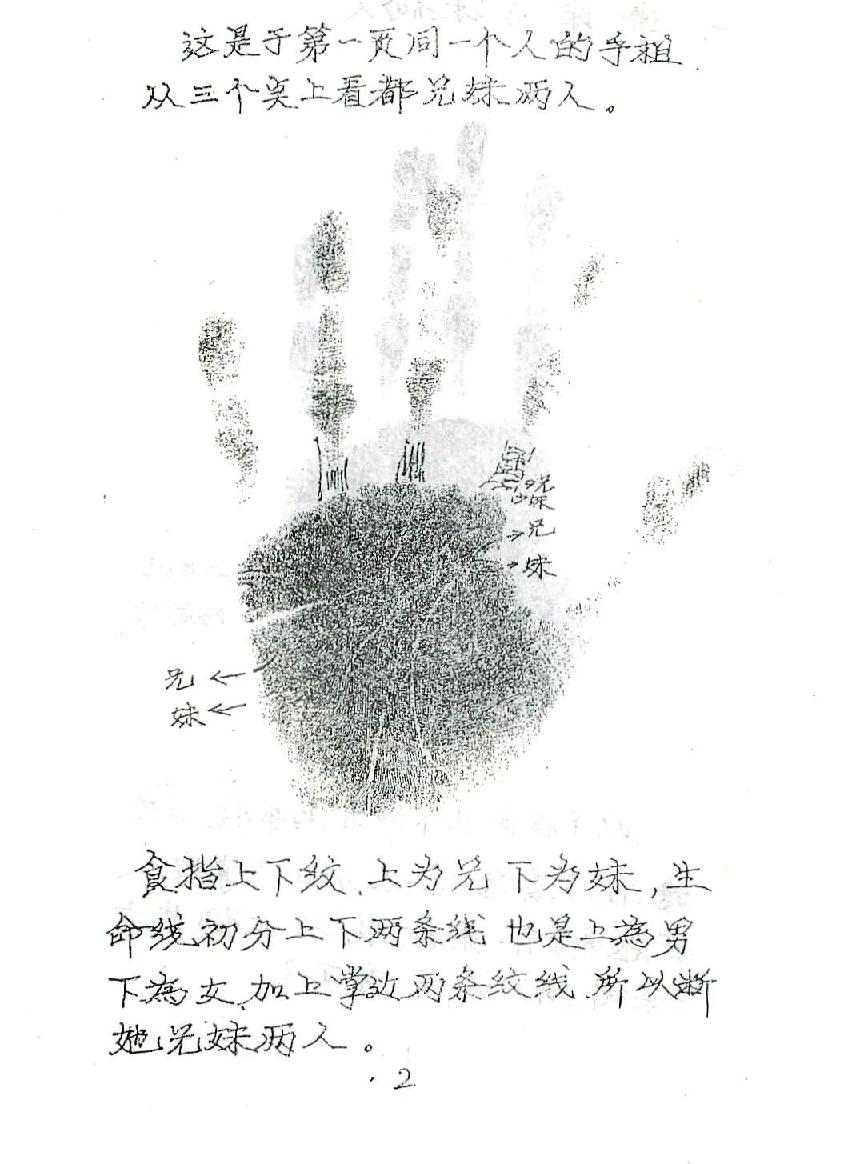 这是于第一页同一个人的手祖
从三个奌上看都兄妹两人。
兄
妹
兄
妹
兄
妹
食指上下纹,上为兄下为妹,生
命线初分上下两条线 也是上為男
下為女,加上掌边两条纹线 所以断
她兄妹两人。
2